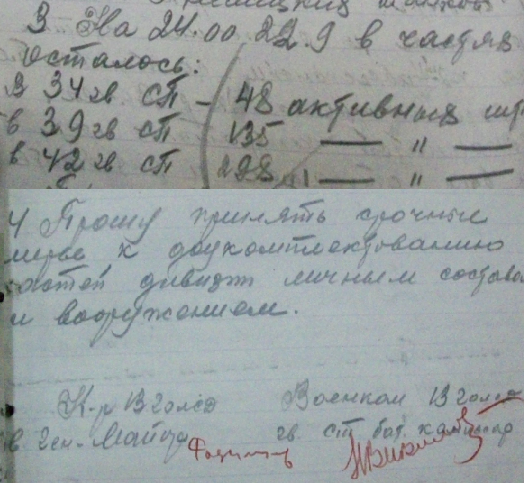 3 На 24.00 22.9 в частях
осталось:
в 34 гв сп - 48 активных шт
в 39 гв сп 135 — " —
в 42 гв сп 298 — " —
4 Прошу принять срочные
меры к доукомплектованию
частей дивизии личным состава
и вооружением.
К-р 13 гв сд Военком 13 гв сд
гв. ген. майор гв. ст бат. комиссар